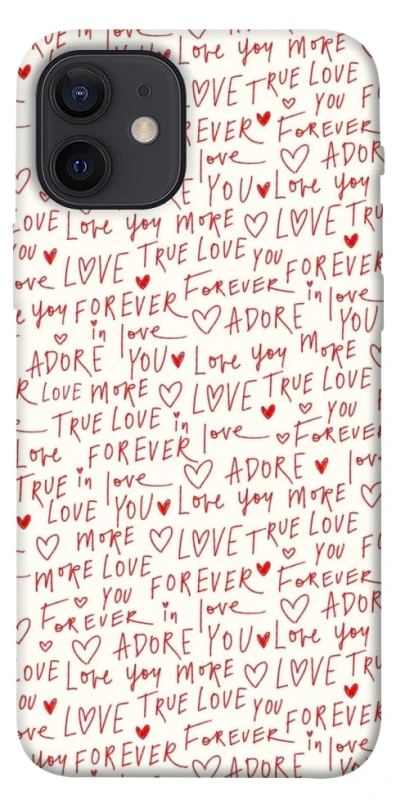 TRUE in love Love you MORE
LOVE TRUE LOVE
YOU
FOREVER FOREVER
love ADOR
E YOU Love you
LOVE Love you MORE LOVE TRU
YOU LOVE TRUE LOVE YOU FOREVER
ove
e you FOREVER FOREVER in love
in love ADORE YOU
ADORE YOU Love you MORE
R LOVE MORE LOVE TRUE LOVE
TRUE LOVE in love YOU
Love FOREVER FOREVE
TRUE in love ADORE love
LOVE YOU Love you MORE
MORE LOVE TRUE LOVE
MORE LOVE YOU F
YOU FOREVER FOREVER
FOREVER in love ADOR
ADORE YOU Love you
LOVE Love you MORE LOVE TRU
YOU LOVE TRUE LOVE YOU FOREVER
ove
you FOREVER FOREVER in love
in love ADORE YOU